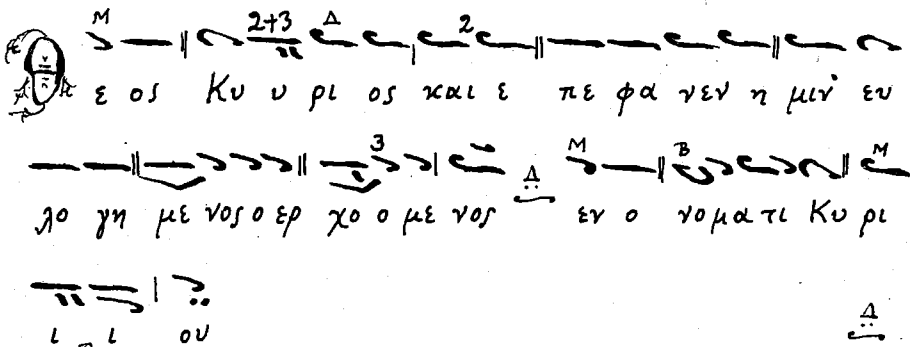 Μ 2+3 Δ 2
ε ος Κυ υ ρι ος και ε πε φα νεν η μιν ευ
3 Δ Μ Β Μ
λο γη με νος ο ερ χο ο με νος εν ο νο μα τι Κυ ρι
ι ι ου Δ